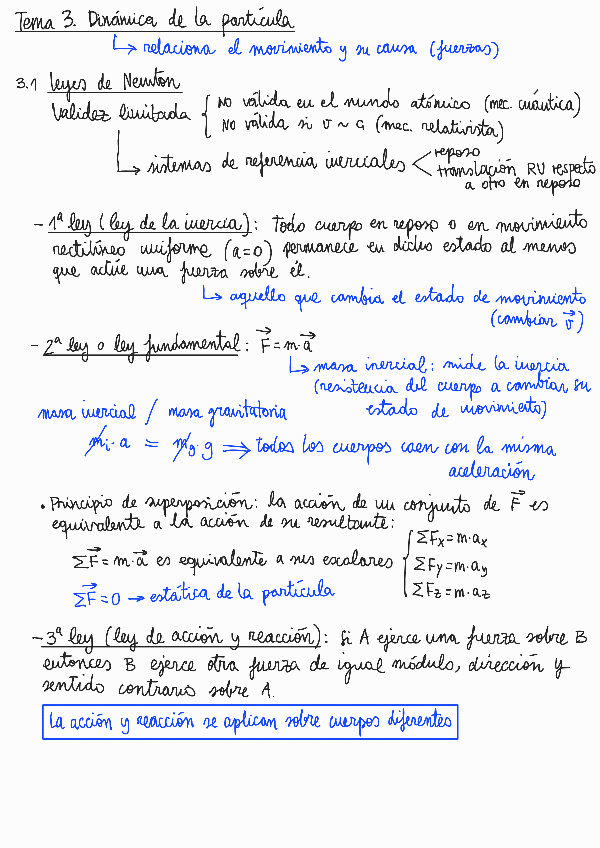 Tema 3. Dinámica de la partícula
↳ relaciona el movimiento y su causa (fuerzas)
3.1 Leyes de Newton
Validez limitada { No válida en el mundo atómico (mec. cuántica)
No válida si v ~ c (mec. relativista)
↳ sistemas de referencia inerciales < reposo
translación RU respecto
a otro en reposo
- 1ª ley (ley de la inercia): Todo cuerpo en reposo o en movimiento
rectilíneo uniforme (a=0) permanece en dicho estado al menos
que actúe una fuerza sobre él.
↳ aquello que cambia el estado de movimiento
(cambiar v⃗)
- 2ª ley o ley fundamental: F⃗ = m·a⃗
↳ masa inercial: mide la inercia
(resistencia del cuerpo a cambiar su
estado de movimiento)
masa inercial / masa gravitatoria
mᵢ·a = m_g·g ⟹ todos los cuerpos caen con la misma
aceleración
• Principio de superposición: la acción de un conjunto de F⃗ es
equivalente a la acción de su resultante:
ΣF⃗ = m·a⃗ es equivalente a sus escalares { ΣFx = m·ax
ΣFy = m·ay
ΣFz = m·az
ΣF⃗ = 0 → estática de la partícula
- 3ª ley (ley de acción y reacción): Si A ejerce una fuerza sobre B
entonces B ejerce otra fuerza de igual módulo, dirección y
sentido contrario sobre A.
La acción y reacción se aplican sobre cuerpos diferentes